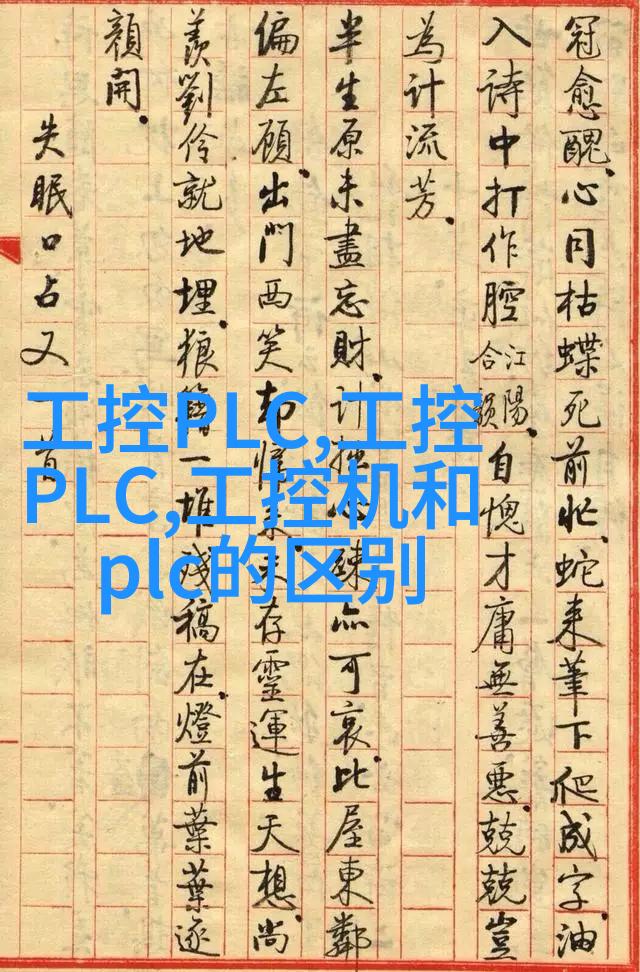 冠愈醜。心同枯蝶死前忙。蛇来筆下爬成字。油
入詩中打作腔江陽合韻。自愧才庸無善惡。兢兢豈
為計流芳。
半生原未盡忘財。計拙心疎亦可哀。比屋東鄰
偏左顧。出門西笑却慵来。存靈運生天想。尚
羨劉伶就地埋。狼籍一堆殘稿在。燈前葉葉逐
顏開。
失眠口占又一首
工控PLC,工控
PLC,工控机和
plc的区别